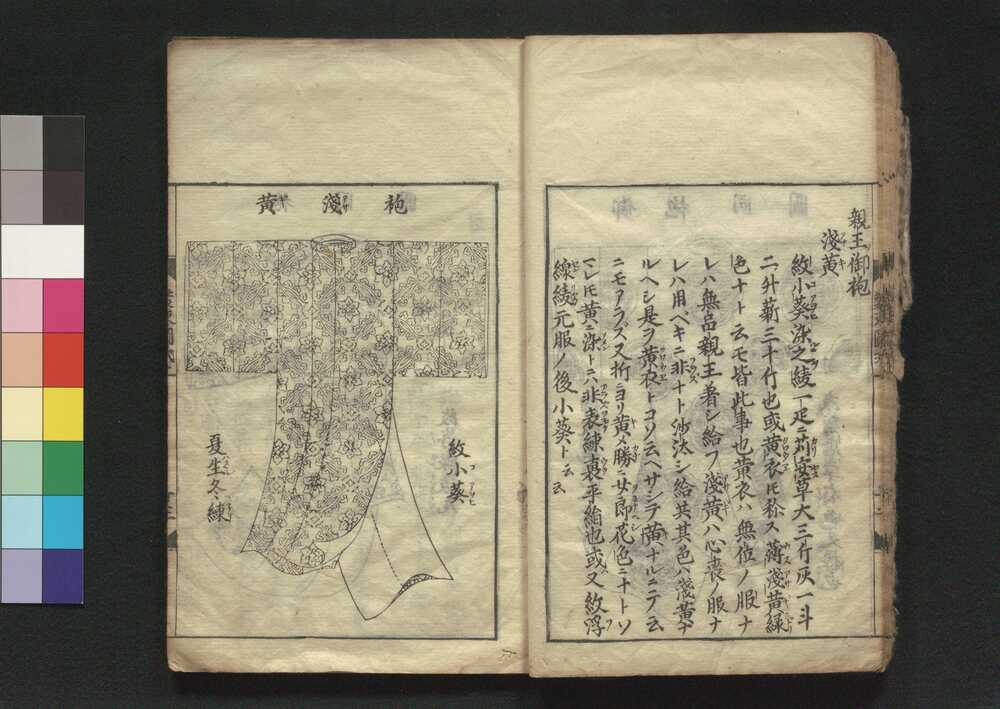 親王御袍
淺黄
紋小葵染之綾一疋ニ苅安草大三斤灰一斗
二升薪三十斤也或黄衣ト秡ス薄淺黄緑
色ナト云モ皆此事也黄衣ハ無位ノ服ナ
レハ無品親王着シ給フ淺黄ハ心喪ノ服ナ
レハ用ヘキニ非ナト沙汰シ給共其色ハ淺黄ナ
ルヘシ是ヲ黄衣トコソ云ヘサシテ蔭ナルニテ云
ニモアラズ又折ニヨリ黄メ勝ニ女郎花色ニナトソ
マレ𪜈黄ニ染トニハ非表練裏平絹也或又紋浮
線綾元服ノ後小葵ト云云
袍淺黄
紋小葵
夏生冬練